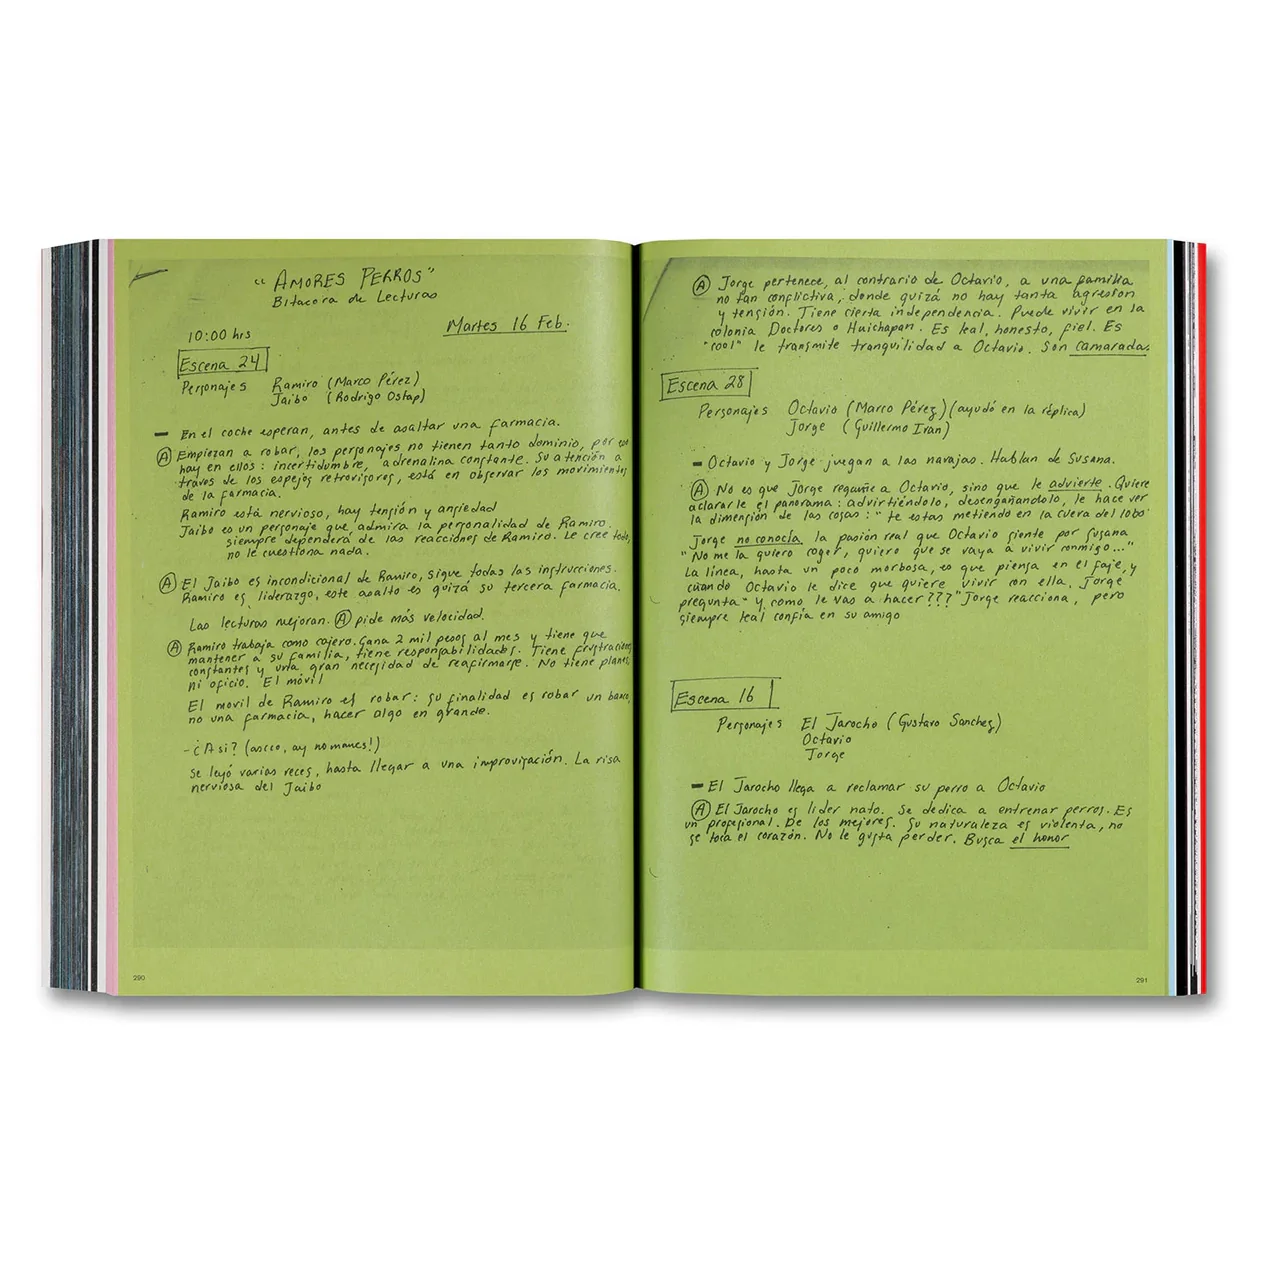 "AMORES PERROS"
Bitacora de Lecturas
Martes 16 Feb.
10:00 hrs
Escena 24
Personajes Ramiro (Marco Pérez)
Jaibo (Rodrigo Ostap)
— En el coche esperan, antes de asaltar una farmacia.
(A) Empiezan a robar, los personajes no tienen tanto dominio, por eso
hay en ellos: incertidumbre, adrenalina constante. Su atención a
traves de los espejos retrovisores, está en observar los movimientos
de la farmacia.
Ramiro está nervioso, hay tensión y ansiedad
Jaibo es un personaje que admira la personalidad de Ramiro.
siempre dependerá de las reacciones de Ramiro. Le cree todo,
no le cuestiona nada.
(A) El Jaibo es incondicional de Ramiro, sigue todas las instrucciones.
Ramiro es liderazgo, este asalto es quizá su tercera farmacia.
Las lecturas mejoran. (A) pide más velocidad.
(A) Ramiro trabaja como cajero. Gana 2 mil pesos al mes y tiene que
mantener a su familia, tiene responsabilidades. Tiene frustraciones
constantes y una gran necesidad de reafirmarse. No tiene planes,
ni oficio. El móvil
El movil de Ramiro es robar: su finalidad es robar un banco,
no una farmacia, hacer algo en grande.
- ¿Asi? (ascco, ay no manes!)
Se leyó varias veces, hasta llegar a una improvisación. La risa
nerviosa del Jaibo
290
(A) Jorge pertenece, al contrario de Octavio, a una familia
no tan conflictiva, donde quizá no hay tanta agresion
y tensión. Tiene cierta independencia. Puede vivir en la
colonia Doctores o Huichapan. Es leal, honesto, fiel. Es
"cool" le transmite tranquilidad a Octavio. Son camaradas.
Escena 28
Personajes Octavio (Marco Pérez) (ayudó en la réplica)
Jorge (Guillermo Iran)
— Octavio y Jorge juegan a las navajas. Hablan de Susana.
(A) No es que Jorge regañe a Octavio, sino que le advierte. Quiere
aclararle el panorama: advirtiéndolo, desengañandolo, le hace ver
la dimensión de las cosas: "te estas metiendo en la cueva del lobo"
Jorge no conocía la pasión real que Octavio siente por Susana
"No me la quiero coger, quiero que se vaya a vivir conmigo..."
La línea, hasta un poco morbosa, es que piensa en el faje, y
cuando Octavio le dice que quiere vivir con ella, Jorge
pregunta "y como le vas a hacer???" Jorge reacciona, pero
siempre leal confía en su amigo
Escena 16
Personajes El Jarocho (Gustavo Sanchez)
Octavio
Jorge
— El Jarocho llega a reclamar su perro a Octavio
(A) El Jarocho es lider nato. Se dedica a entrenar perros. Es
un profesional. De los mejores. Su naturaleza es violenta, no
se toca el corazón. No le gusta perder. Busca el honor
291